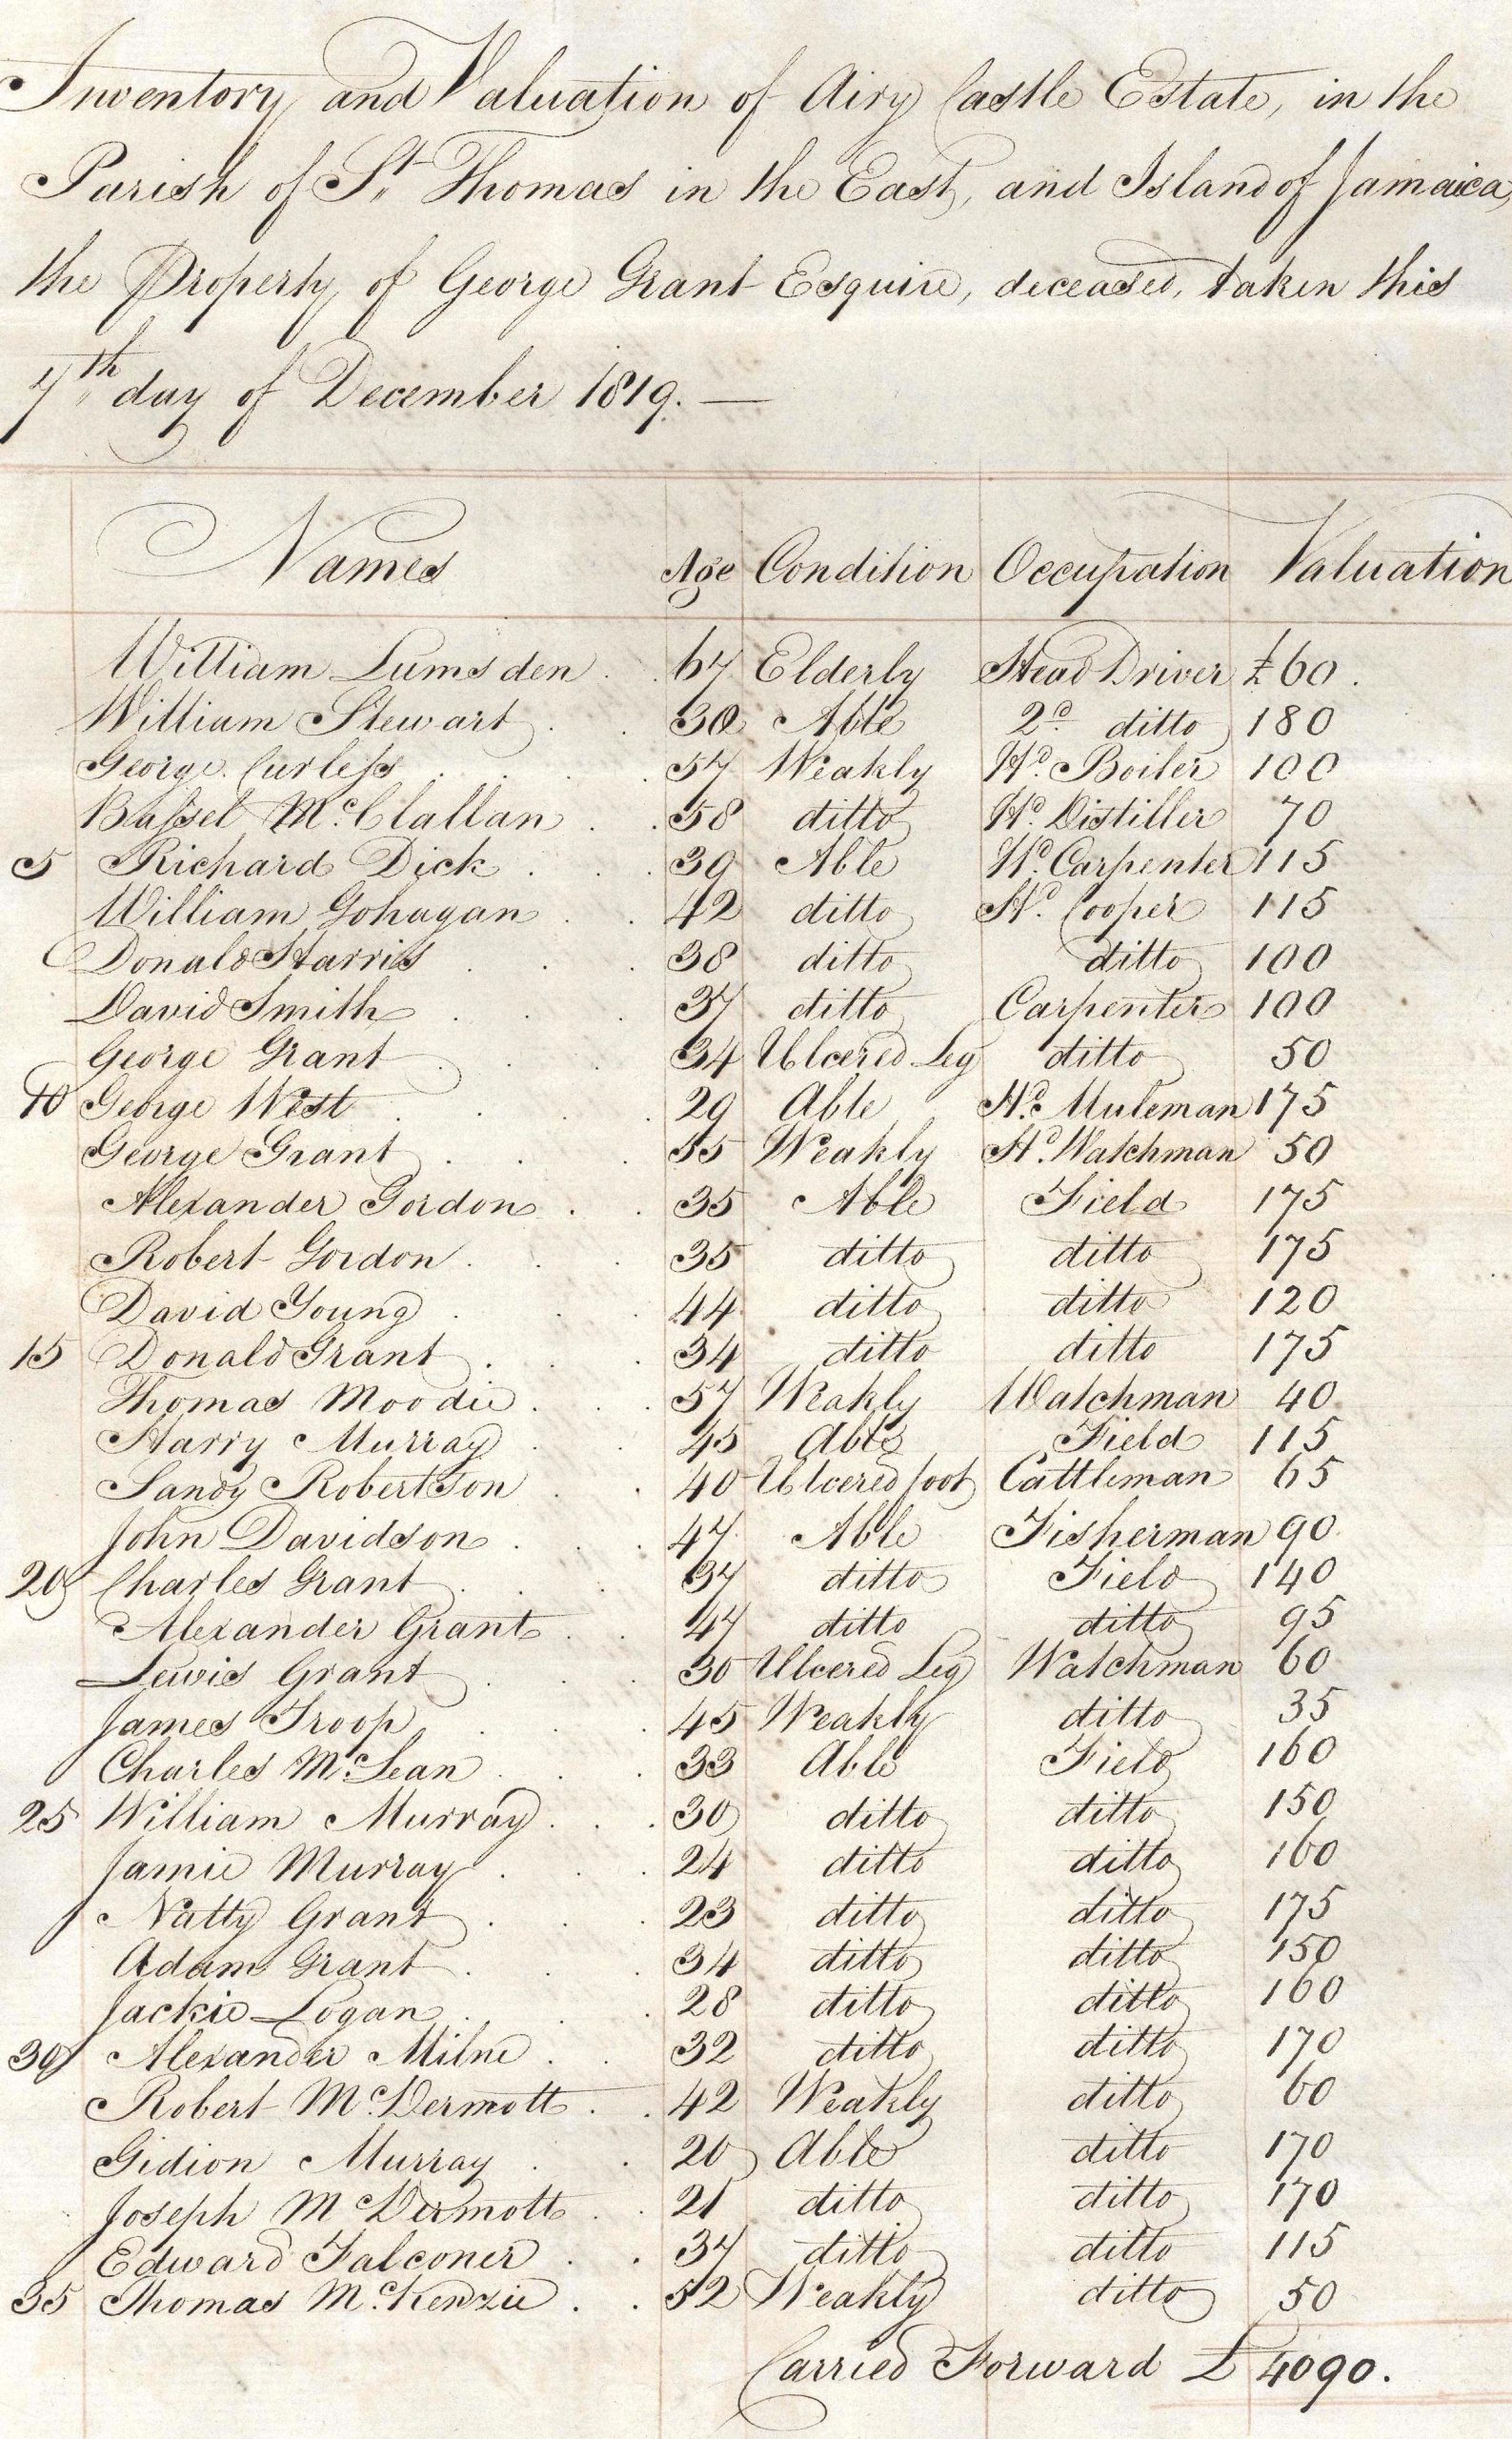 Inventory and Valuation of Airy Castle Estate, in the
Parish of St. Thomas in the East, and Island of Jamaica,
the Property of George Grant Esquire, deceased, taken this
7th day of December 1819. —
Names Age Condition Occupation Valuation
William Lumsden . . 67 Elderly Head Driver £60.
William Stewart . . 30 Able 2d. ditto 180
George Curless . . . . 57 Weakly Hd. Boiler 100
Bassel McClallan . . 58 ditto Hd. Distiller 70
5 Richard Dick . . . 39 Able Hd. Carpenter 115
William Gohagan . . 42 ditto Hd. Cooper 115
Donald Harris . . . 38 ditto ditto 100
David Smith . . . 37 ditto Carpenter 100
George Grant . . . 34 Ulcered Leg ditto 50
10 George West . . . . 29 Able Hd. Muleman 175
George Grant . . . 55 Weakly Hd. Watchman 50
Alexander Gordon . . 35 Able Field 175
Robert Gordon . . . 35 ditto ditto 175
David Young . . . 44 ditto ditto 120
15 Donald Grant . . . 34 ditto ditto 175
Thomas Moodie . . . 57 Weakly Watchman 40
Harry Murray . . 45 Able Field 115
Sandy Robertson . . 40 Ulcered foot Cattleman 65
John Davidson . . . 47 Able Fisherman 90
20 Charles Grant . . . 37 ditto Field 140
Alexander Grant . . 47 ditto ditto 95
Lewis Grant . . . 30 Ulcered Leg Watchman 60
James Troop . . . 45 Weakly ditto 35
Charles McLean . . . 33 Able Field 160
25 William Murray . . . 30 ditto ditto 150
Jamie Murray . . . 24 ditto ditto 160
Natty Grant . . . 23 ditto ditto 175
Adam Grant . . . 34 ditto ditto 150
Jackie Logan . . . 28 ditto ditto 160
30 Alexander Milne . . 32 ditto ditto 170
Robert McDermott . . 42 Weakly ditto 60
Gidion Murray . . 20 Able ditto 170
Joseph McDermott . . 21 ditto ditto 170
Edward Falconer . . 37 ditto ditto 115
35 Thomas McKenzie . . 52 Weakly ditto 50
Carried Forward £ 4090.